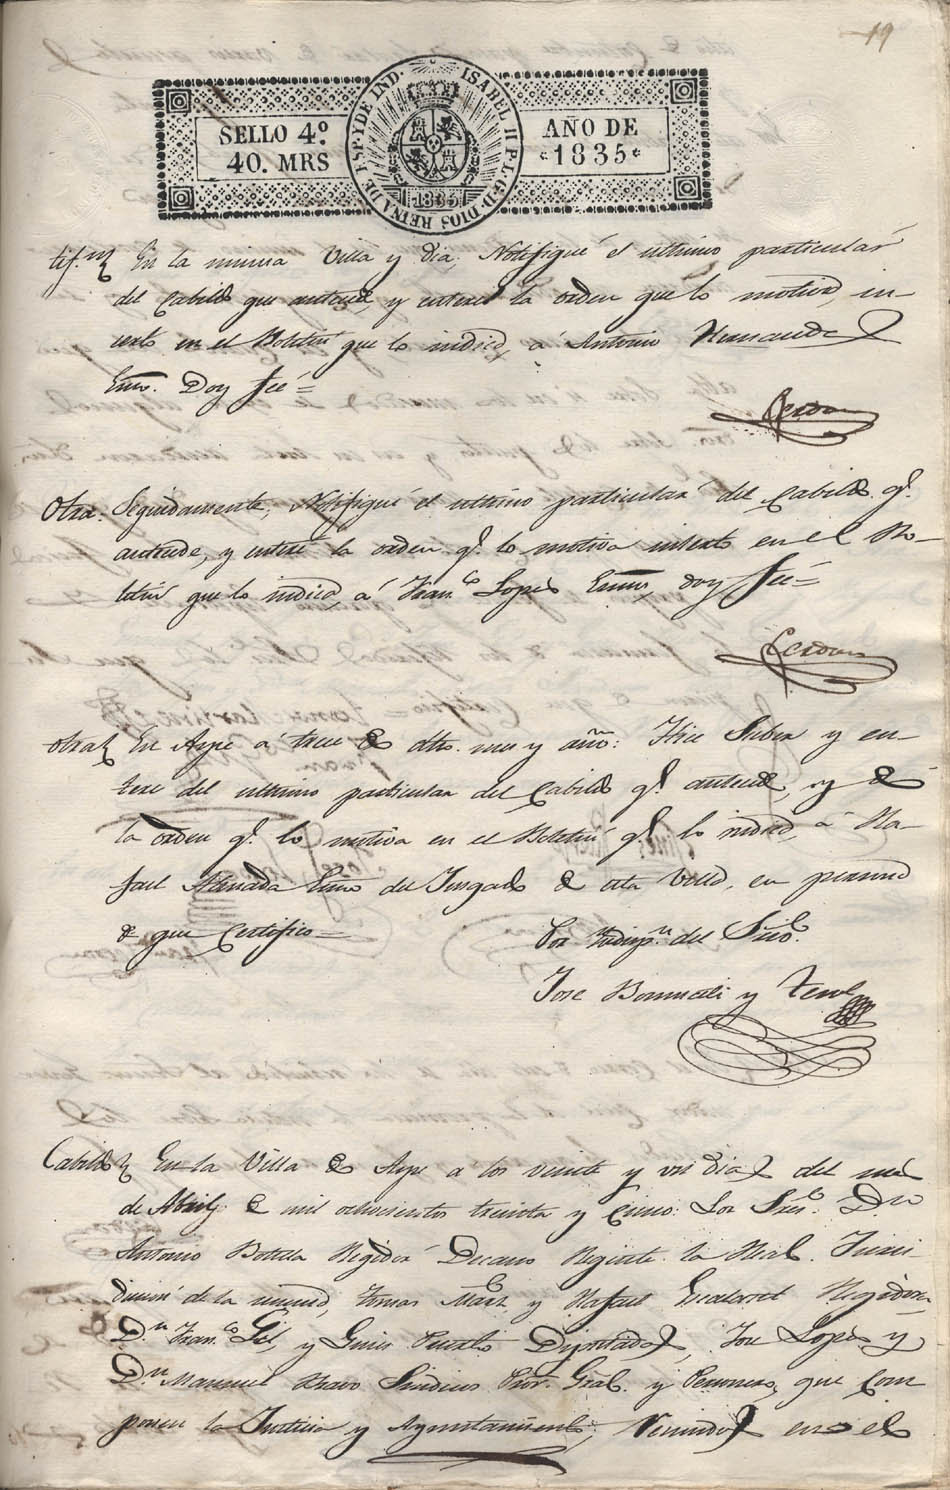 19
SELLO 4º
40. MRS
ISABEL II P. L. G. D. DIOS REINA DE ESP. Y DE IND.
1835
AÑO DE
1835
En la misma Villa y dia, Notifiqué el ultimo particular
del Cabildo que antecede, y enteré la orden que lo motiva, in-
serto en el Boletin que lo indica, á Antonio Hernandez
Essno. Doy fée=
Cerdan
Otra. Seguidamente, Notifiqué el ultimo particular del Cabildo q.e
antecede, y enteré la orden q.e lo motiva inserto en el Bo-
letin que lo indica, á Fran.co Lopez Essno, doy fée=
Cerdan
otra En Aspe á trece de dho. mes y año: Hice Saber y en-
tere del ultimo particular del Cabildo q.e antecede, y de
la orden q.e lo motiva en el Boletin q.e lo indica, á Ra-
fael Almada Essno del Jusgado de esta Villa, en persona
de que Certifico=
Por Indisp.n del Srio.
Jose Bonmati y
Cabildo En la Villa de Aspe a los veinte y un dias del mes
de Abril de mil ochocientos treinta y cinco: Los Sres. Dn
Antonio Botella Regidor Decano Regente la Real Juris
diccion de la misma, Tomas Mart.z y Rafael Regidores,
D.n Fran.co Gil, y Gines Diputados, Jose Lopez y
D.n Manuel Bravo Sindicos Pror. Gral. y Personero, que Com
ponen la Justicia y Ayuntamiento, Reunidos en el